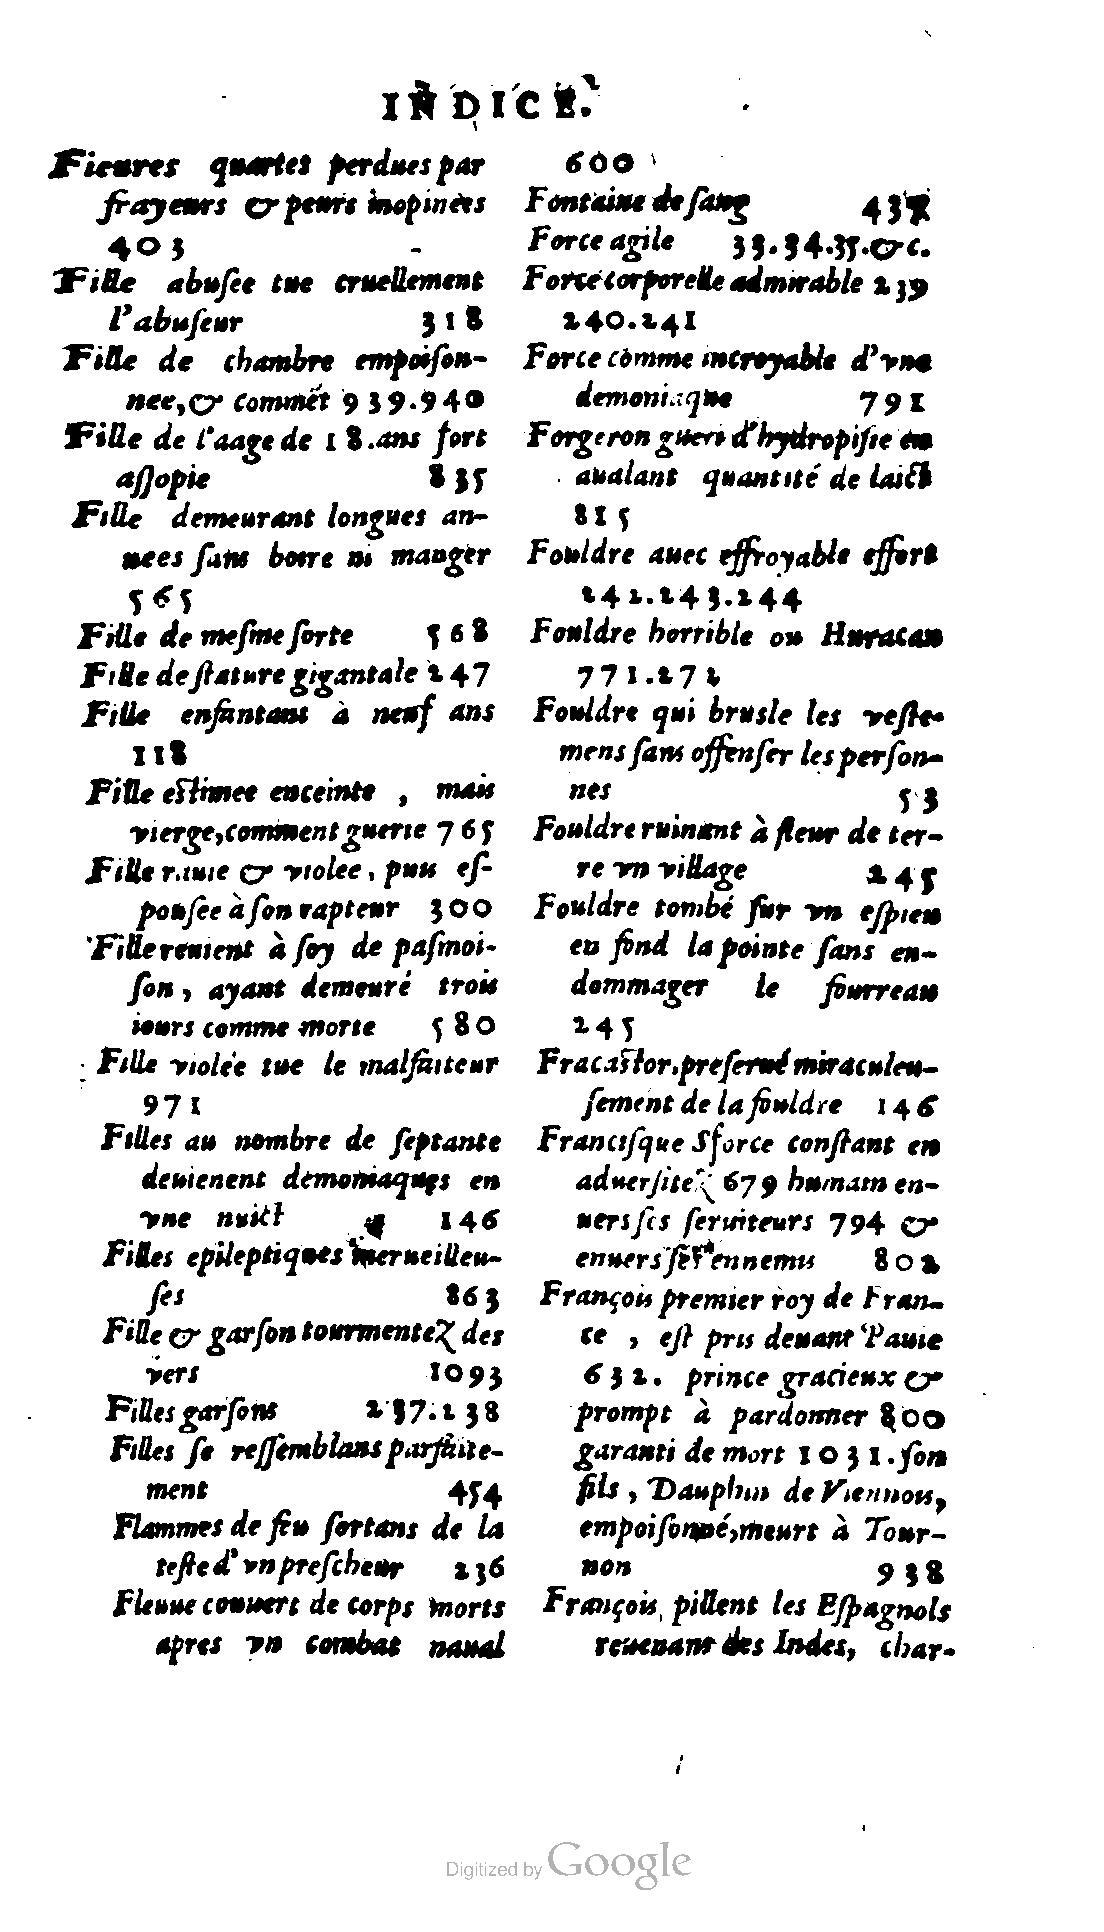 INDICE.
Fieures quartes perdues par
frayeurs & peurs inopinées
403
Fille abusee tue cruellement
l'abuseur 318
Fille de chambre empoison-
nee, & commẽt 939.940
Fille de l'aage de 18. ans fort
assopie 835
Fille demeurant longues an-
nees sans boire ni manger
565
Fille de mesme sorte 568
Fille de stature gigantale 247
Fille enfantant à neuf ans
118
Fille estimee enceinte, mais
vierge, comment guerie 765
Fille rauie & violee, puis es-
pousee à son rapteur 300
Fille reuient à soy de pasmoi-
son, ayant demeuré trois
iours comme morte 580
Fille violée tue le malfaiteur
971
Filles au nombre de septante
deuienent demoniaques en
vne nuict 146
Filles epileptiques merueilleu-
ses 863
Fille & garson tourmentez des
vers 1093
Filles garsons 237.238
Filles se ressemblans parfaite-
ment 454
Flammes de feu sortans de la
teste d'vn prescheur 236
Fleuue couuert de corps morts
apres vn combat naual
600
Fontaine de sang
Force agile 33.34.35.&c.
Force corporelle admirable 239
240.241
Force comme incroyable d'vne
demoniaque 791
Forgeron gueri d'hydropisie en
aualant quantité de laict
815
Fouldre auec effroyable effort
242.243.244
Fouldre horrible ou Huracan
771.272
Fouldre qui brusle les veste-
mens sans offenser les person-
nes 53
Fouldre ruinant à fleur de ter-
re vn village 245
Fouldre tombé sur vn espieu
en fond la pointe sans en-
dommager le fourreau
245
Fracastor, preserué miraculeu-
sement de la fouldre 146
Francisque Sforce constant en
aduersitez 679 humain en-
uers ses seruiteurs 794 &
enuers ses ennemis 802
François premier roy de Fran-
ce, est pris deuant Pauie
632. prince gracieux &
prompt à pardonner 800
garanti de mort 1031. son
fils, Dauphin de Viennois,
empoisonné, meurt à Tour-
non 938
François pillent les Espagnols
reuenant des Indes, char-
Digitized by Google